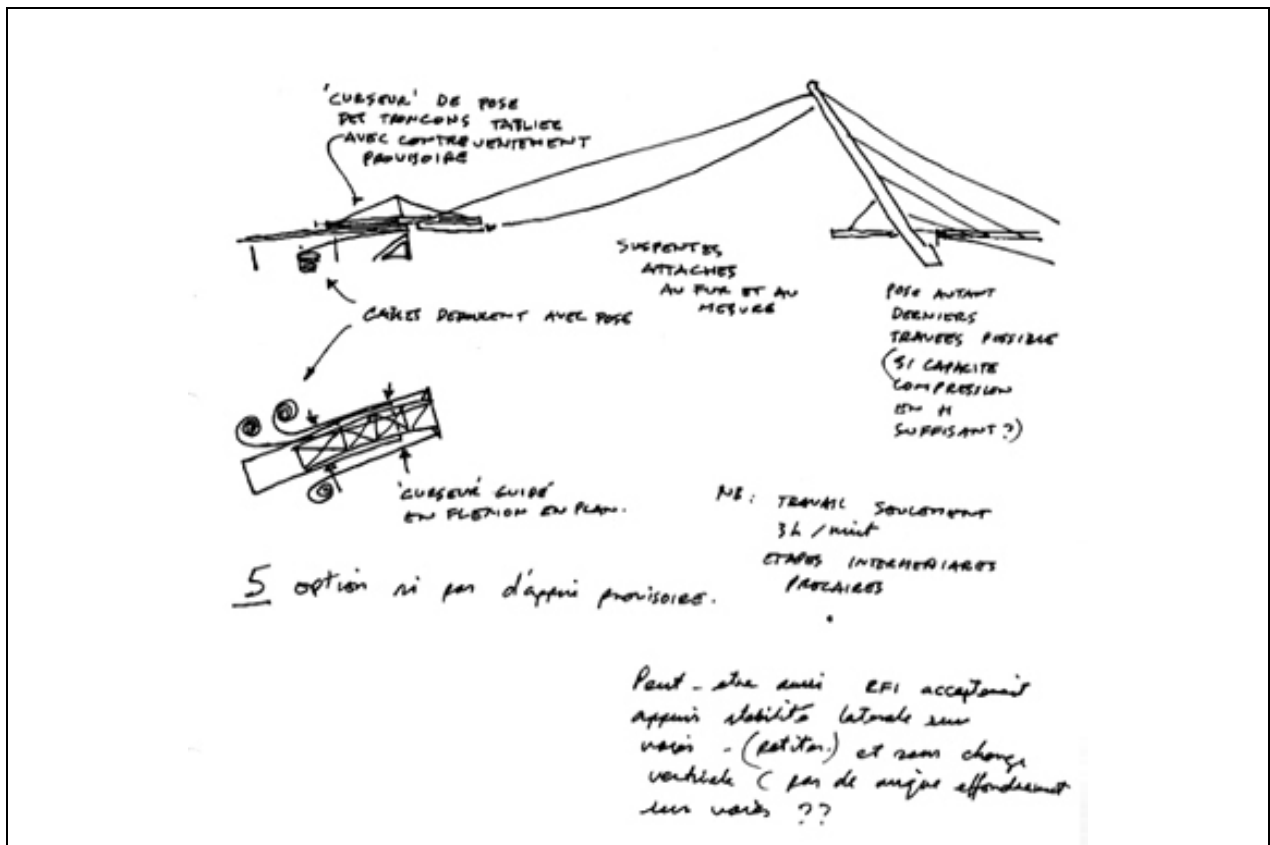 'CURSEUR' DE POSE
DES TRONCONS TABLIER
AVEC CONTREVENTEMENT
PROVISOIRE
SUSPENTES
ATTACHES
AU FUR ET AU
MESURE
POSE AUTANT
DERNIERS
TRAVEES POSSIBLE
(SI CAPACITE
COMPRESSION
EN H
SUFFISANT?)
CABLES DEROULENT AVEC POSE
'CURSEUR' GUIDÉ
EN FLEXION EN PLAN.
NB: TRAVAIL SEULEMENT
3h/nuit
ETAPES INTERMEDIARES
PRECAIRES
5 option si pas d'appui provisoire.
Peut-etre aussi RFI accepterait
appuis stabilité laterale sur
voies - (petites) et sans charge
verticale (pas de risque effondrement
sur voies ??